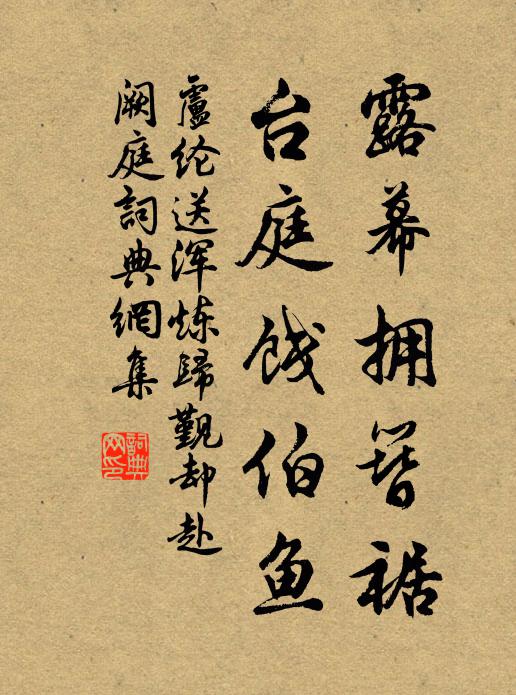 露幕拥簪裾
台庭饯伯鱼
盧纶送浑炼歸觐却赴
阙庭詞典網集
詞典
网印